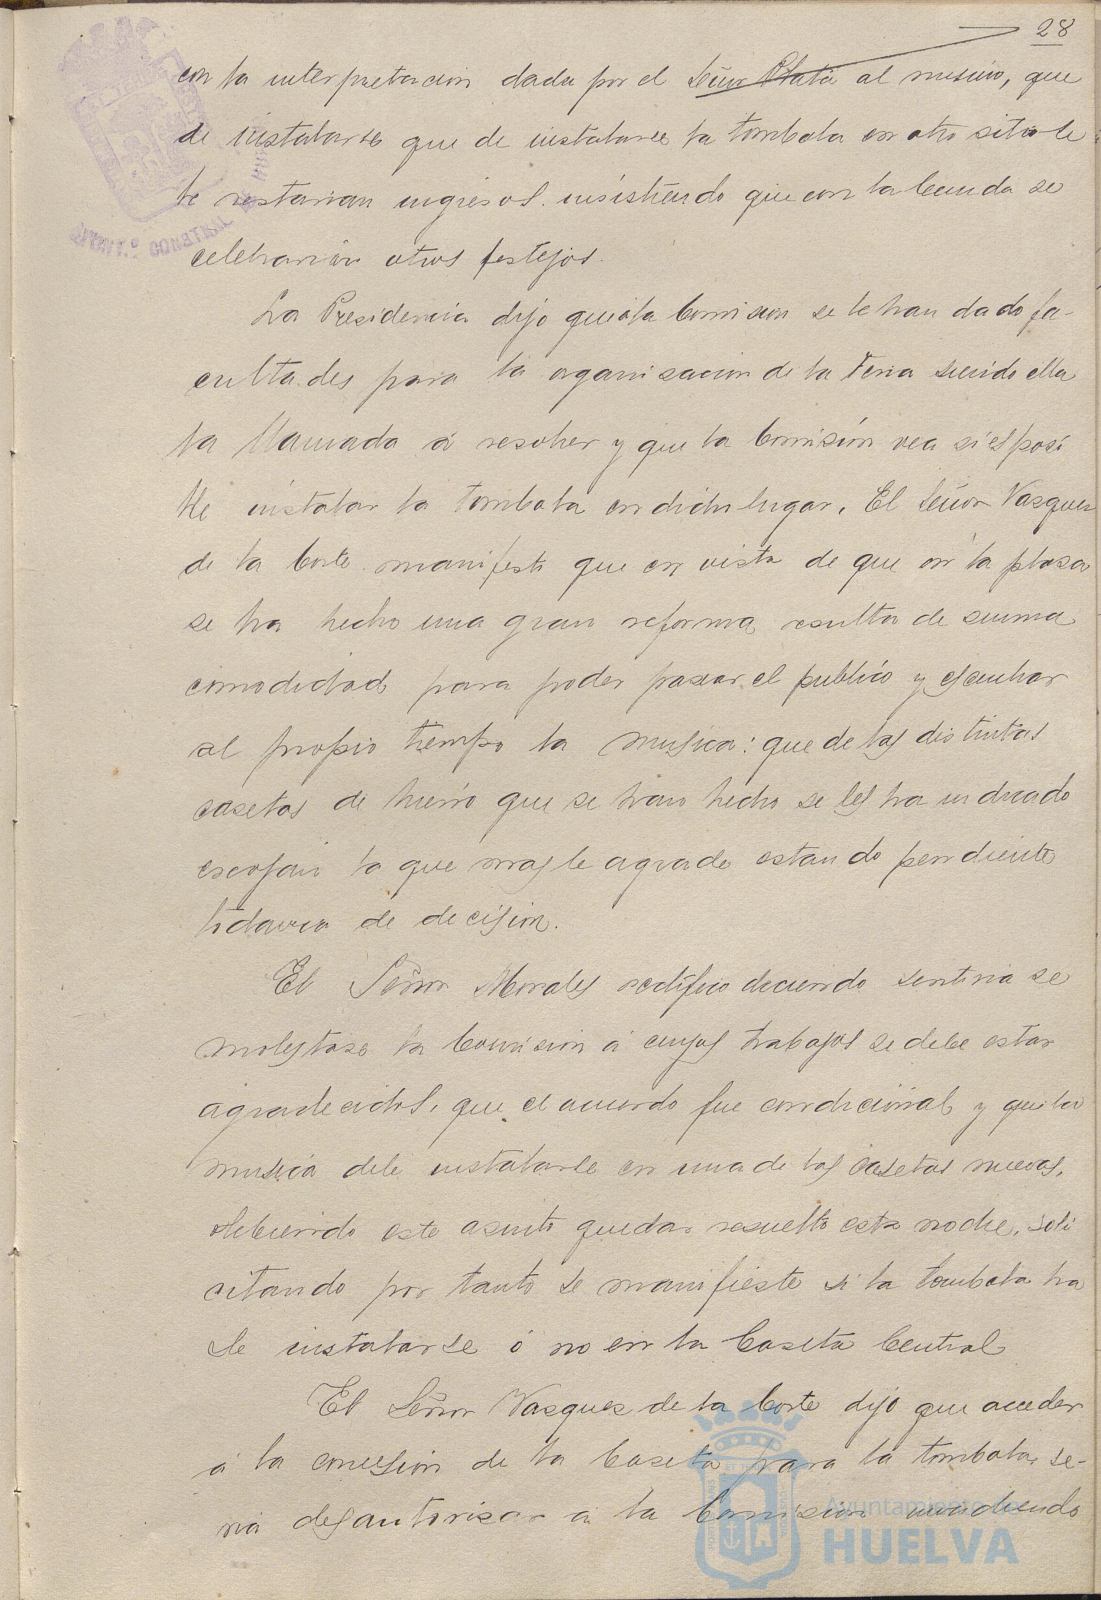 28
con la interpretacion dada por el Señor Plata al mismo, que
de instalarse que de instalarse la tombola en otro sitio se
le restarian ingresos insistiendo que con la banda se
celebrarian otros festejos.
La Presidencia dijo que á la Comision se le han dado fa-
cultades para la organisacion de la Feria siendo ella
la llamada á resolver y que la Comisión vea si es posi
ble instalar la tombola en dicho lugar. El Señor Vasques
de la Corte manifestó que en vista de que en la plasa
se ha hecho una gran reforma, resulta de suma
comodidad para poder pasear el publico y escuchar
al propio tiempo la musica: que de las distintas
casetas de hierro que se han hecho se les ha indicado
escojan la que mas le agrade estando pendiente
todavia de decision.
El Señor Morales rectifico diciendo sentiria se
molestase la Comision á cuyos trabajos se debe estar
agradecidos, que el acuerdo fue condicional y que la
musica debe instalarse en una de las casetas nuevas,
debiendo este asunto quedar resuelto esta noche, soli
citando por tanto se manifieste si la tombola ha
de instalarse ó no en la Caseta Central
El Señor Vasques de la Corte dijo que acceder
á la concesion de la Caseta para la tombola, se-
ria desautorisar á la Comision
Ayuntamiento de
HUELVA